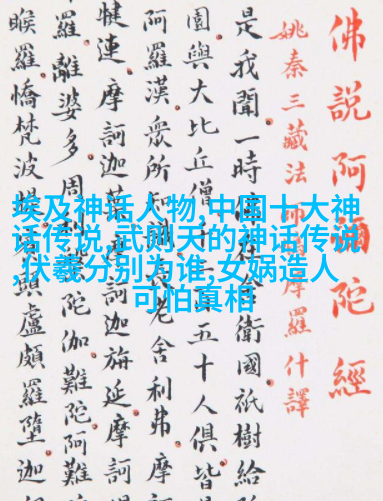 佛說阿彌陀經
姚秦三藏法師鳩摩羅什譯
是我聞一時佛在舍衛國祇樹給
園與大比丘僧千二百五十人俱皆
阿羅漢眾所知識長老舍利弗摩訶
犍連摩訶迦葉摩訶迦旃延摩訶
羅離婆多周利槃陀伽難陀阿難
睺羅憍梵波提賓頭盧頗羅墮迦
埃及神话人物,中国十大神
话传说,武则天的神话传说
,伏羲分别为谁,女娲造人
可怕真相